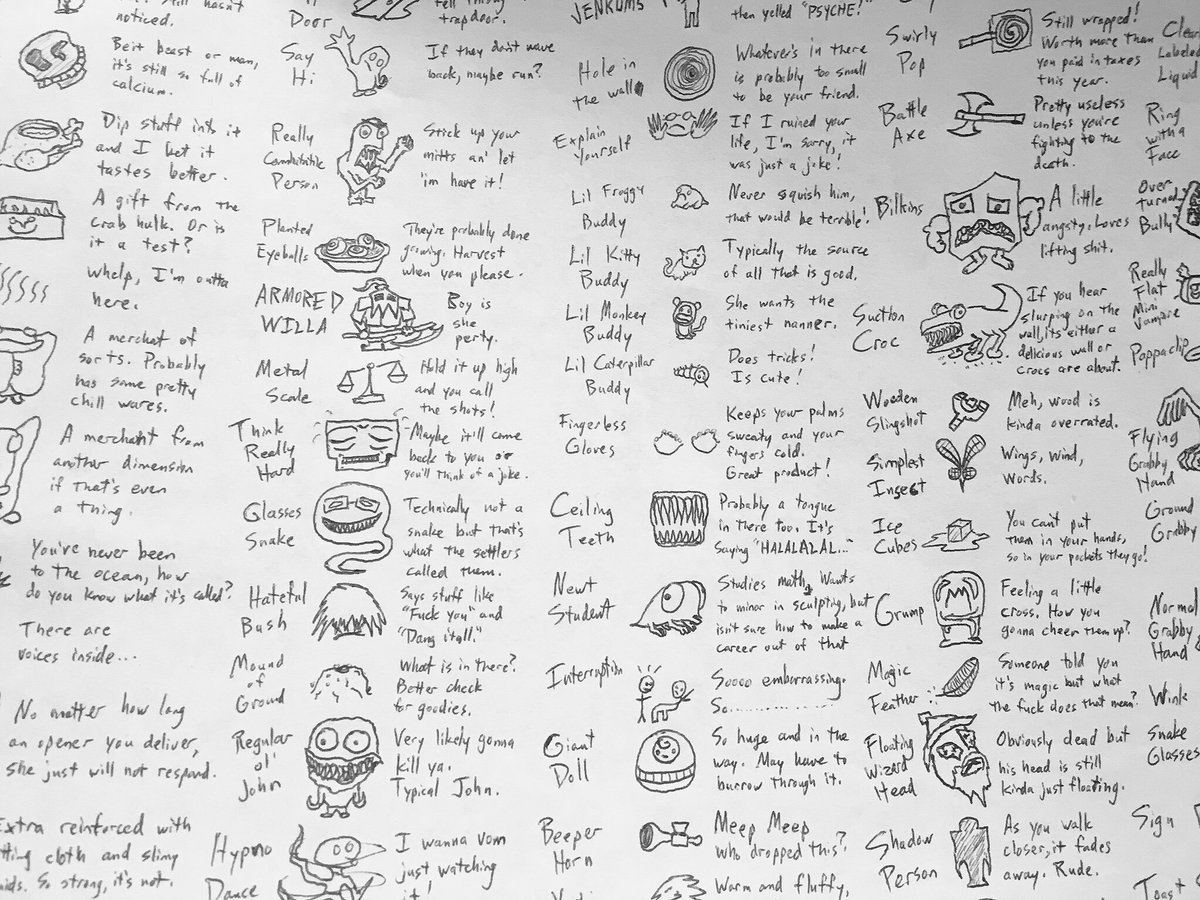 noticed.
Beit beast or man,
it's still so full of
calcium.
Dip stuff into it
and I bet it
tastes better.
A gift from the
crab hulk. Or is
it a test?
Whelp, I'm outta
here.
A merchant of
sorts. Probably
has some pretty
chill wares.
A merchant from
another dimension
if that's even
a thing.
You've never been
to the ocean, how
do you know what it's called?
There are
voices inside...
No matter how long
an opener you deliver,
she just will not respond.
Extra reinforced with
cloth and slimy
So strong, it's not.
Door
trapdoor.
Say
Hi
If they don't wave
back, maybe run?
Really
Combatitible
Person
Stick up your
mitts an' let
'im have it!
Planted
Eyeballs
They're probably done
growing. Harvest
when you please.
ARMORED
WILLA
Boy is
she
perty.
Metal
Scale
Hold it up high
and you call
the shots!
Think
Really
Hard
Maybe it'll come
back to you or
you'll think of a joke.
Glasses
Snake
Technically not a
snake but that's
what the settlers
called them.
Hateful
Bush
Says stuff like
"Fuck you" and
"Dang itall."
Mound
of
Ground
What is in there?
Better check
for goodies.
Regular
ol'
John
Very likely gonna
kill ya.
Typical John.
Hypno
Dance
I wanna vom
just watching
it!
JENKUMS
then yelled "PSYCHE!"
Hole in
the wall
Whatever's in there
is probably too small
to be your friend.
Explain
Yourself
If I ruined your
life, I'm sorry, it
was just a joke!
Lil Froggy
Buddy
Never squish him,
that would be terrible!
Lil Kitty
Buddy
Typically the source
of all that is good.
Lil Monkey
Buddy
She wants the
tiniest nanner.
Lil Caterpillar
Buddy
Does tricks!
Is cute!
Fingerless
Gloves
Keeps your palms
sweaty and your
fingers cold.
Great product!
Ceiling
Teeth
Probably a tongue
in there too. It's
saying "HALALALAL..."
Newt
Student
Studies math, Wants
to minor in sculpting, but
isn't sure how to make a
career out of that
Interruption
Soooo embarrassing.
So..................
Giant
Doll
So huge and in the
way. May have to
burrow through it.
Beeper
Horn
Meep Meep
who dropped this?
Warm and fluffy,
Swirly
Pop
Still wrapped!
Worth more than
you paid in taxes
this year.
Battle
Axe
Pretty useless
unless you're
fighting to the
death.
Bilkins
A little
angsty. Loves
lifting shit.
Suction
Croc
If you hear
slurping on the
wall, its either a
delicious wall or
crocs are about.
Wooden
Slingshot
Meh, wood is
kinda overrated.
Simplest
Insect
Wings, Wind,
Words.
Ice
Cubes
You can't put
them in your hands,
so in your pockets they go!
Grump
Feeling a little
cross. How you
gonna cheer them up?
Magic
Feather
Someone told you
it's magic but what
the fuck does that mean?
Floating
Wizard
Head
Obviously dead but
his head is still
kinda just floating.
Shadow
Person
As you walk
closer, it fades
away. Rude.
Labeled
Liquid
Ring
with a
Face
Over
turned
Bully
Really
Flat
Mini
Vampire
Poppaclip
Flying
Grabby
Hand
Ground
Grabby
Normal
Grabby
Hand
Wink
Snake
Glasses
Sign
Toast